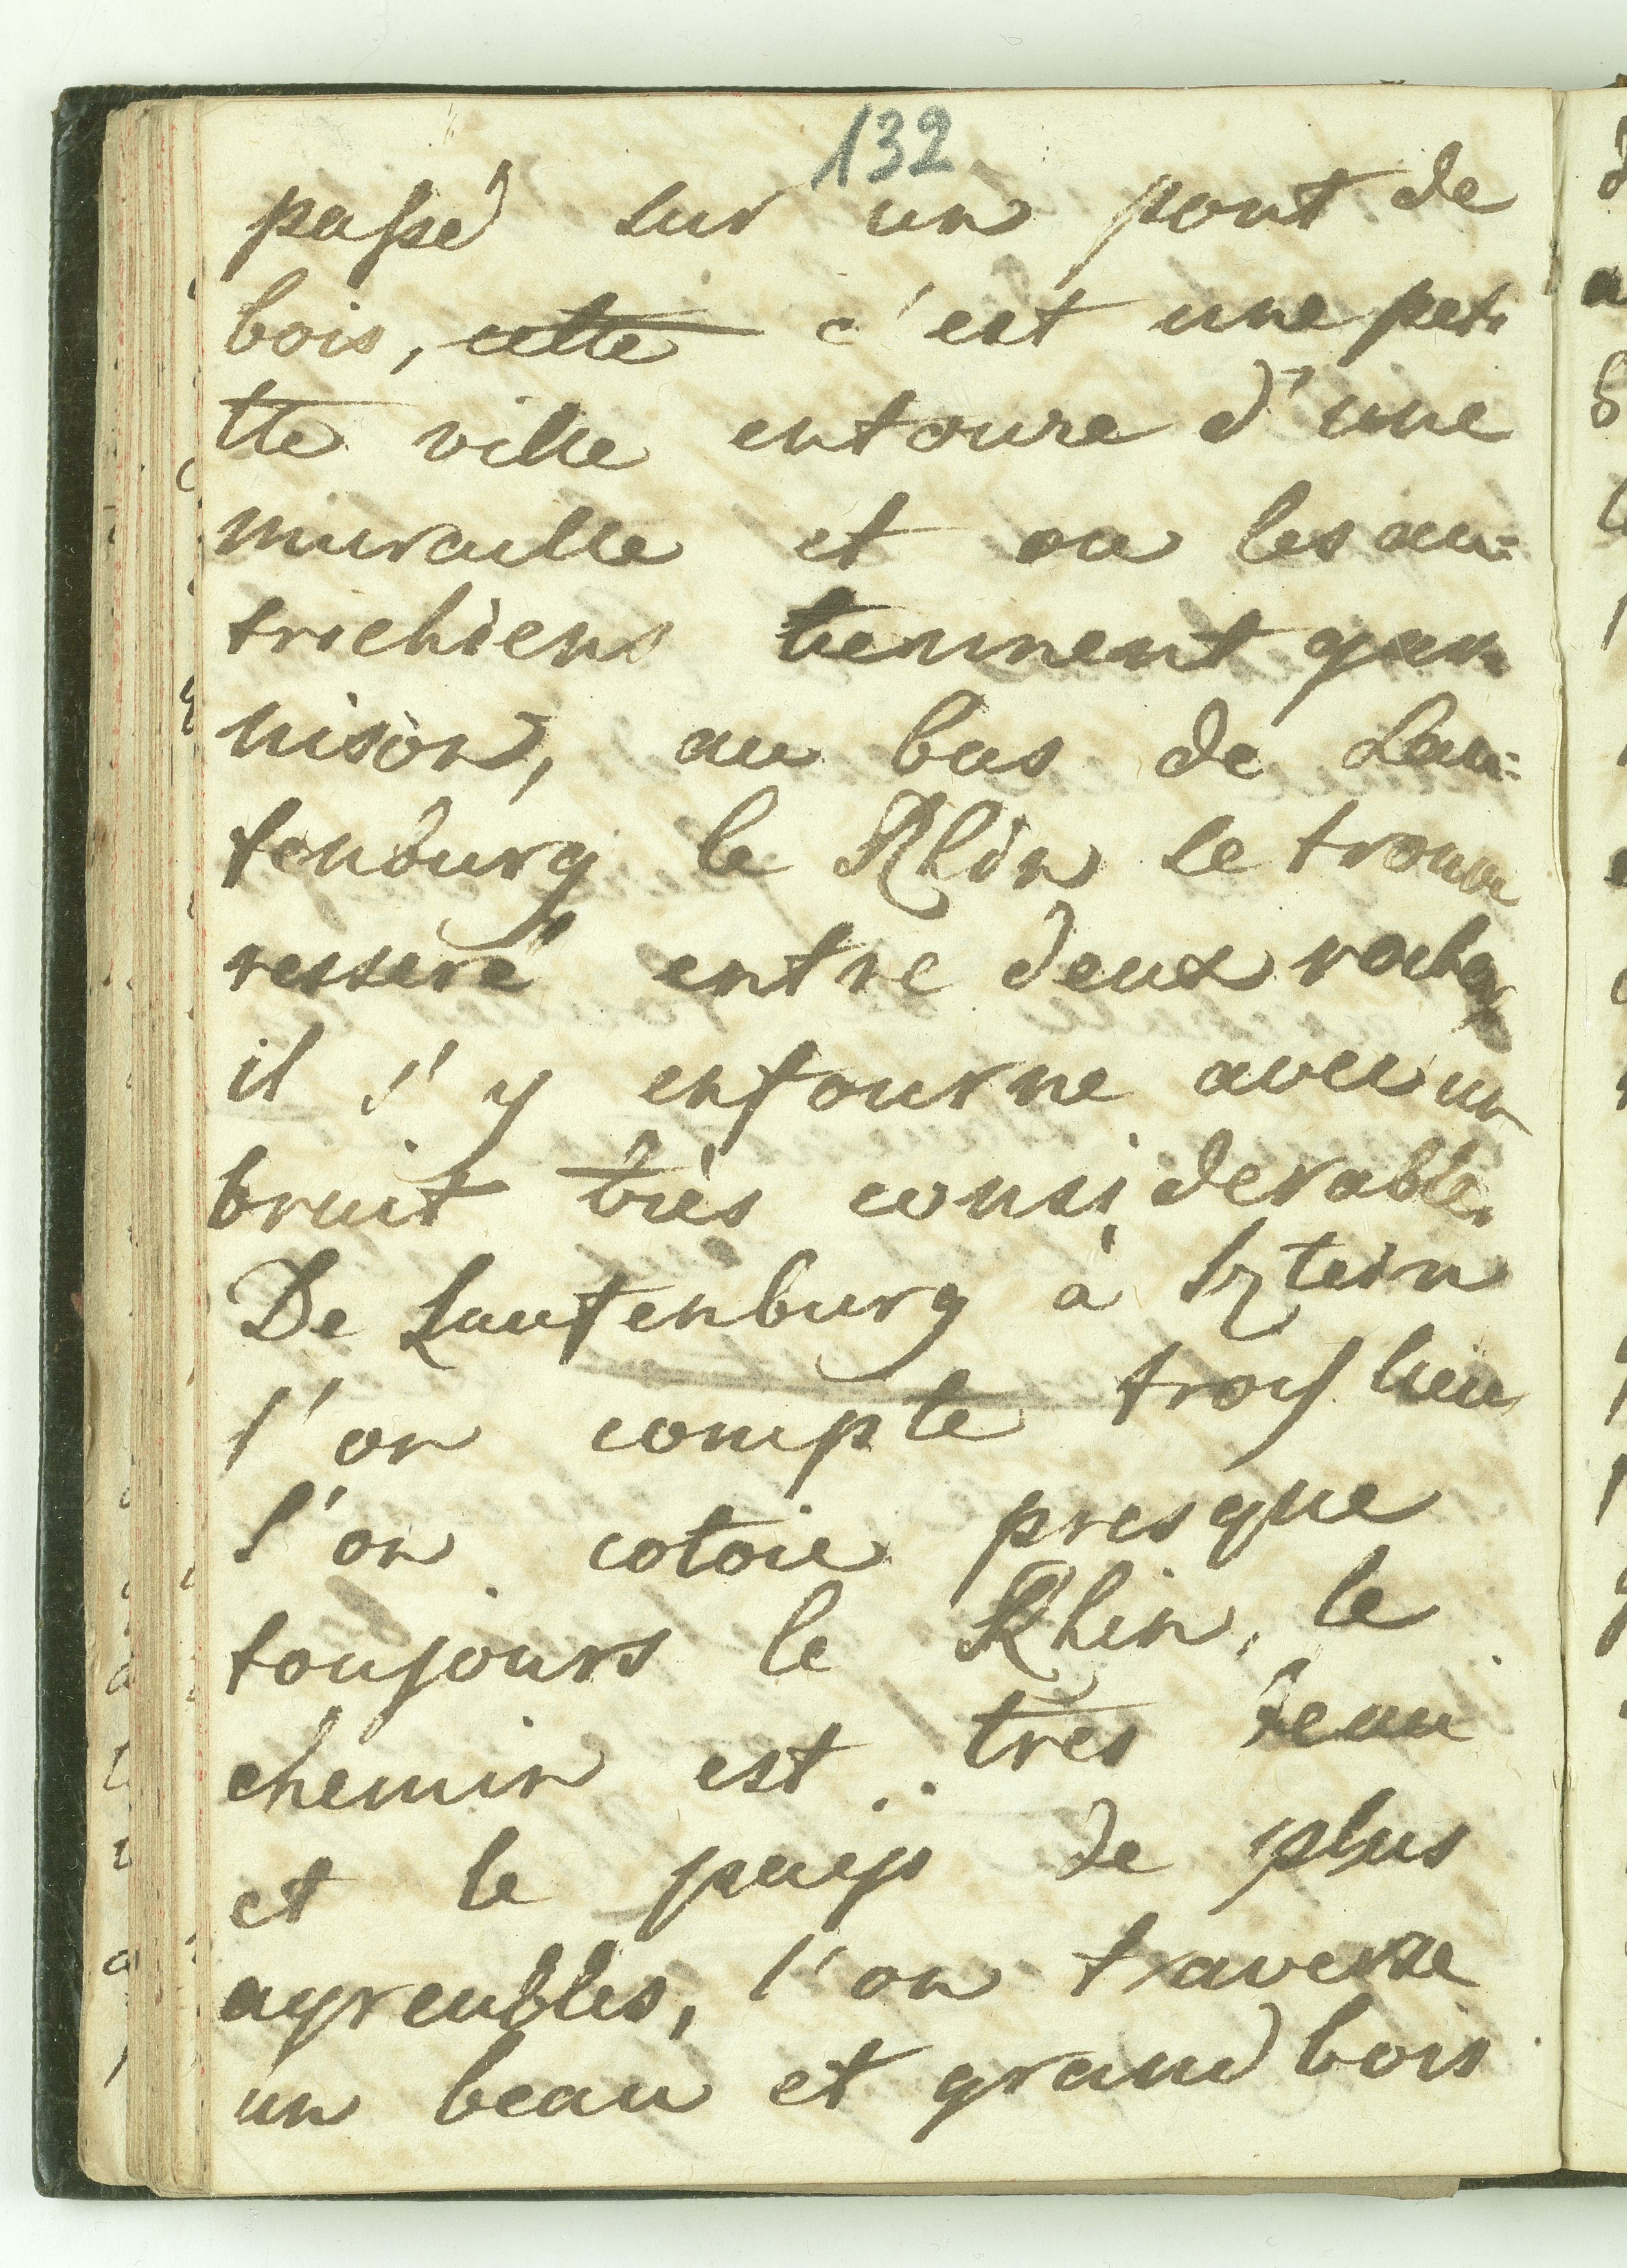 132
passé sur un pont de
bois, cette c'est une peti
tte ville entoure d'une
muraille et ou les au=
trichiens tiennent gar
nison, au bas de Lau=
fenburg le Rhin se trouve
resseré entre deux rocher
il s'y enfourne avec un
bruit très considerable.
De Laufenburg à Sztein
l'on compte trois lieu
l'on cotoie presque
toujours le Rhin, le
chemin est très beau
et le pays de plus
agreables, l'on traverse
un beau et grand bois